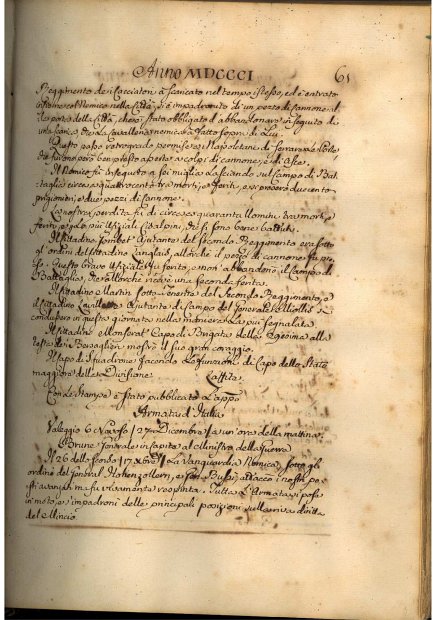 Anno MDCCCI 61
Reggimento de i Cacciatori à scaricato nel tempo istesso, ed è entrato
col Nemico nella Città, si è impadronito di un pezzo di Cannone
porta della Città, che era stato obbligato di abbandonare in seguito di
che la Cavalleria nemica à fatto sopra di Lui
Questo passo retrogrado permise ai Napoletani di serrare le Porte
furono però ben presto aperte a colpi di cannone, e di Asce
Il Nemico fù inseguito a sei miglia lasciando sul campo di Bat
taglia circa quattrocento trà morti, e feriti, e si presero duecento
prigionieri, e due pezzi di cannone.
La nostra perdita fù di circa quaranta Uomini trà morti, e
feriti, e più Uffiziali Cisalpini, che si sono bene battuti.
Il Cittadino Ajutante del Secondo Reggimento era sotto
gl'ordini del Cittadino allorchè il pezzo di cannone fu pre
so. Questo bravo Uffiziale fù ferito, e non abbandonò il Campo di
Battaglia, che allorchè ricevè una seconda ferita.
Il Cittadino Martin sotto-tenente del Secondo Reggimento, e
il Cittadino Ajutante di Campo del Generale Miollis si
condussero in questa giornata nella maniera la più segnalata
Il Cittadino Monserat Capo di Brigata della alla
testa de i Bersaglieri mostrò il suo gran coraggio.
Il Capo di Squadrone facendo le funzioni di Capo dello Stato
maggiore della Divisione
Con le Stampe è stato pubblicato l'app.o
Armata d'Italia
Valeggio 6 Nevoso /27 Dicembre/ a un'ora della mattina
Brune Generale in Capite al Ministro della Guerra
Il 26 dello scorso La Vanguardia Nemica, sotto gli
ordini del General Hohenzollern, e attaccò i nostri po
sti avanzati ma fù vivamente respinta. Tutta l'Armata si pose
in moto, e s'impadronì delle principali posizioni sulla riva diritta
del Mincio